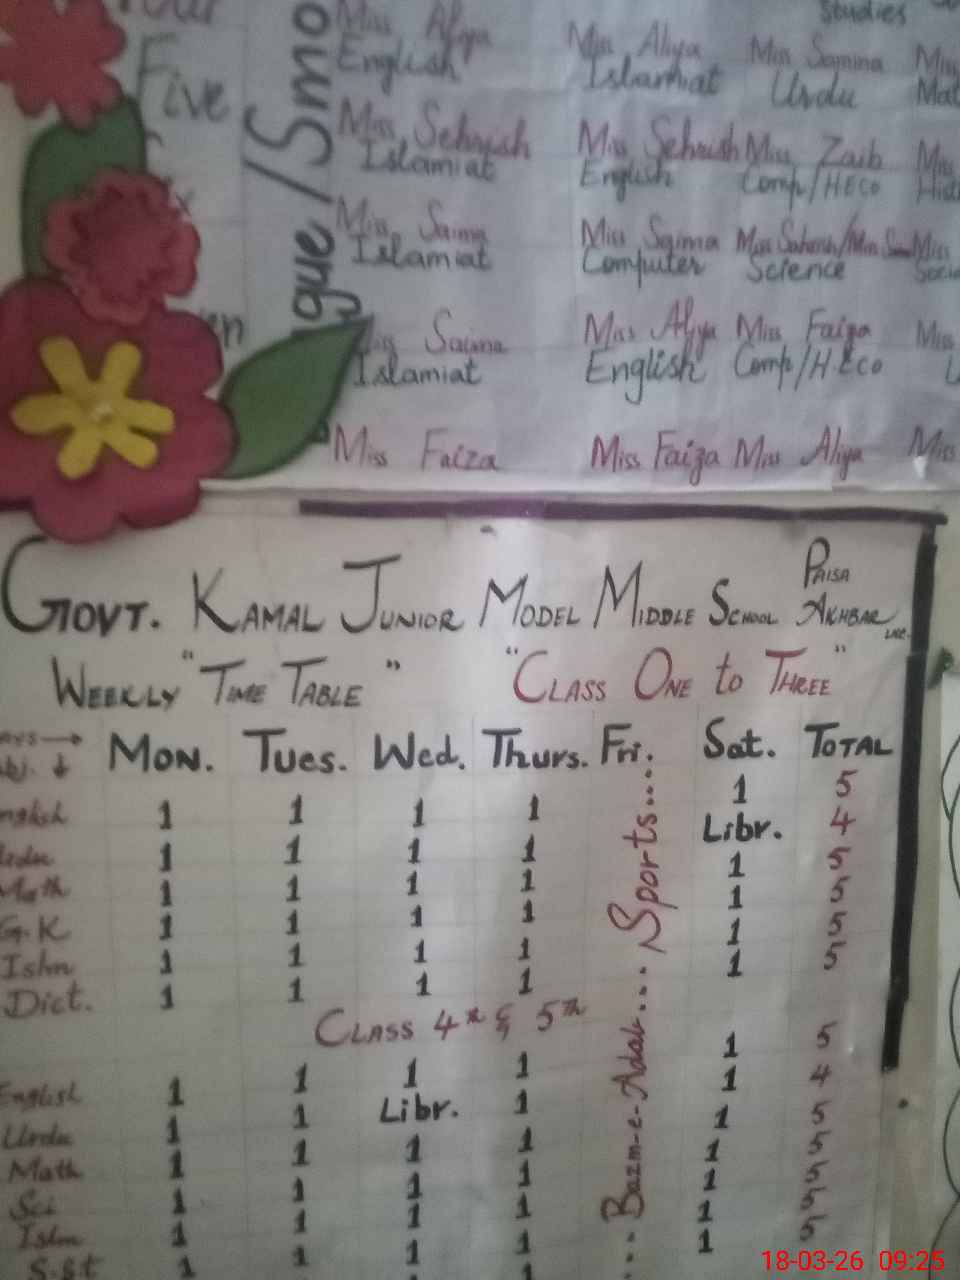 Studies
Five
Miss Aliya Miss Aliya Miss Samina Miss
English Islamiat Urdu
Miss Sehrish Miss Sehrish Miss Zaib Miss
Islamiat English Comp/HEco
Miss Saima Miss Saima
Islamiat Computer Science
Saima Miss Aliya Miss Faiza Miss
Islamiat English Comp/H.Eco
Miss Faiza Miss Faiza Miss Aliya Miss
GOVT. KAMAL JUNIOR MODEL MIDDLE SCHOOL PAISA AKHBAR LHR.
WEEKLY "TIME TABLE" "CLASS ONE to THREE"
MON. TUES. Wed. Thurs. Fri. Sat. TOTAL
English 1 1 1 1 1 5
Urdu 1 1 1 1 Libr. 4
Math 1 1 1 1 1 5
G.K 1 1 1 1 1 5
Islm 1 1 1 1 1 5
Dict. 1 1 1 1 1 5
Bazm-e-Adab... Sports...
CLASS 4th & 5th
English 1 1 1 1 1 5
Urdu 1 1 Libr. 1 1 4
Math 1 1 1 1 1 5
Sci 1 1 1 1 1 5
Islm 1 1 1 1 1 5
S.St 1 1 1 1 1 5
5
18-03-26 09:25